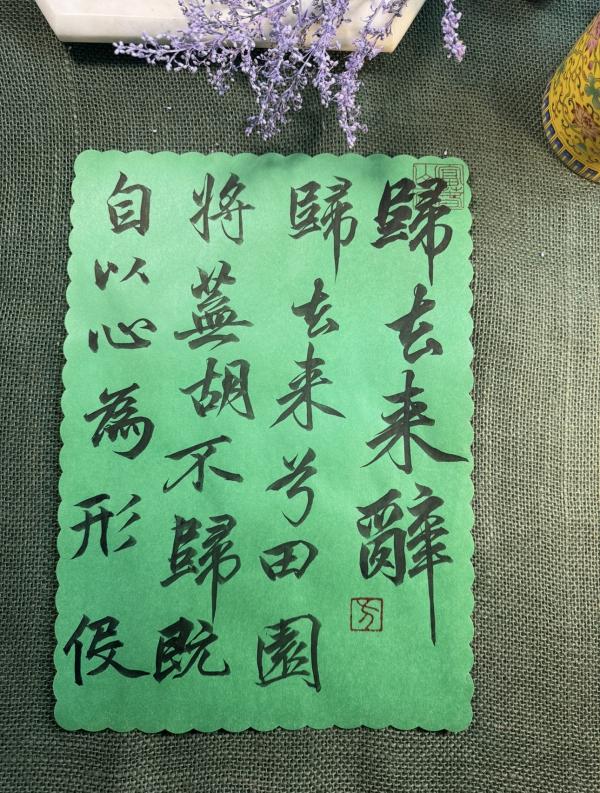 歸去来辭
歸去来兮田園
將蕪胡不歸既
自以心為形役